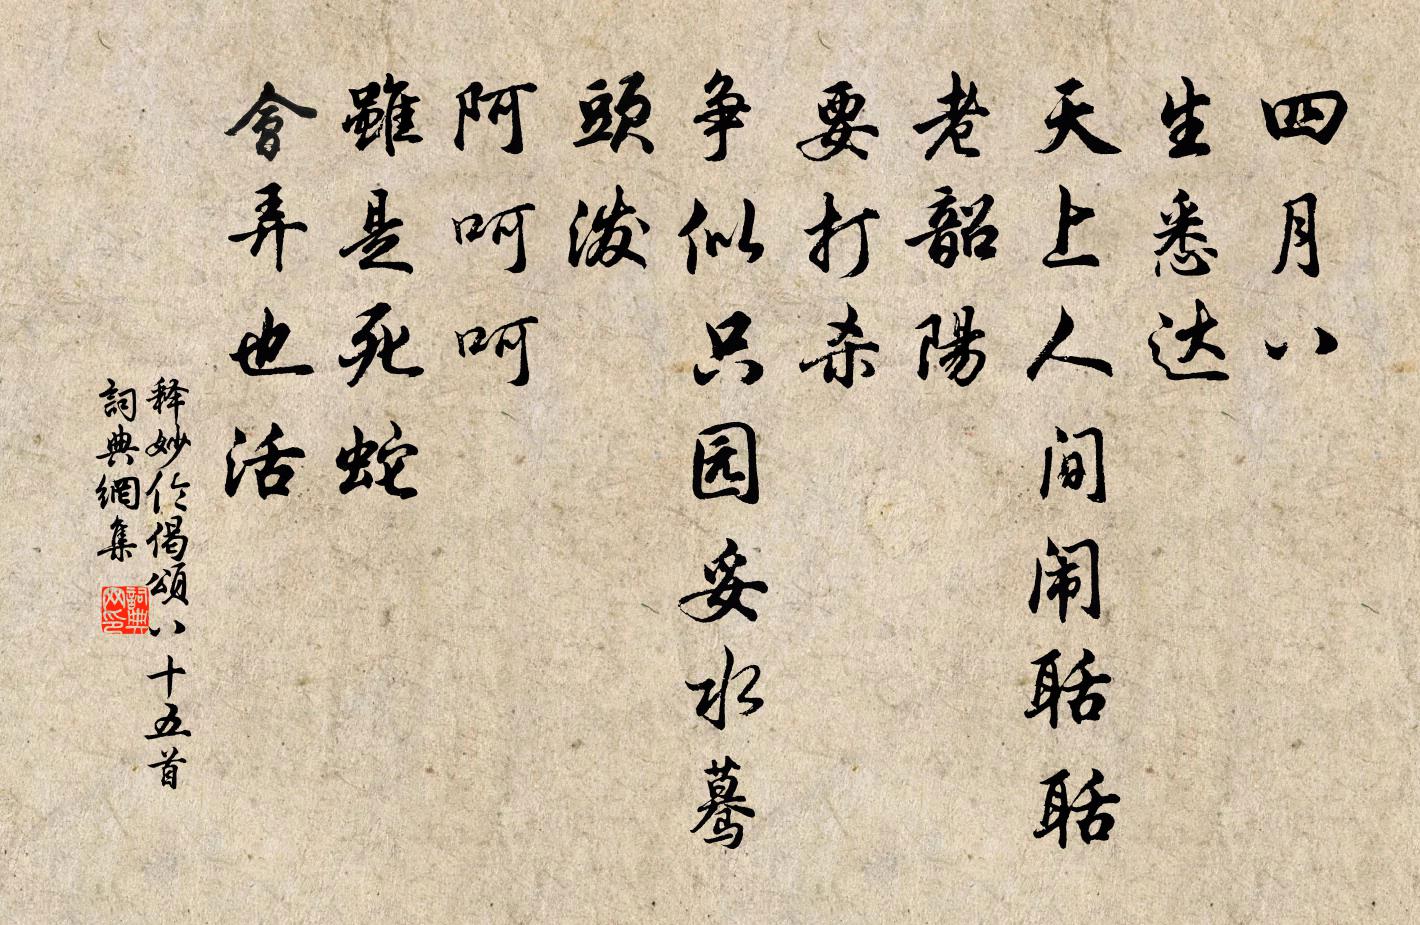 四月八
生悉达
天上人间闹聒聒
老韶陽
要打杀
争似只园妥水蓦
頭泼
阿呵呵
雖是死蛇
會弄也活
释妙伦偈頌八十五首
詞典網集
詞典网印